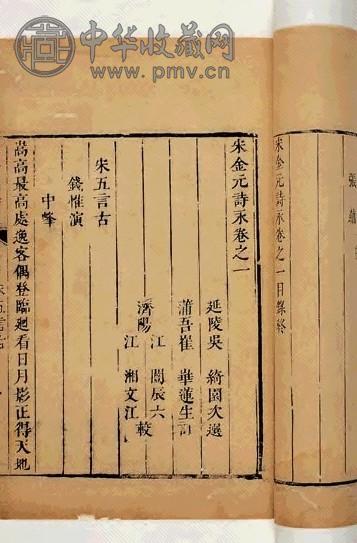 中华收藏网
www.pmv.cn
宋金元詩永卷之一目錄終
宋金元詩永卷之一
延陵吳 綺園次選
蒲吾崔 華蓮生訂
濟陽江 闓辰六
江 湘文江 較
宋五言古
錢惟演
中峯
嵩高最高處逸客偶登臨迴看日月影正得天地